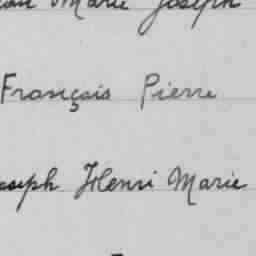 Marie Joseph
François Pierre
Henri Marie